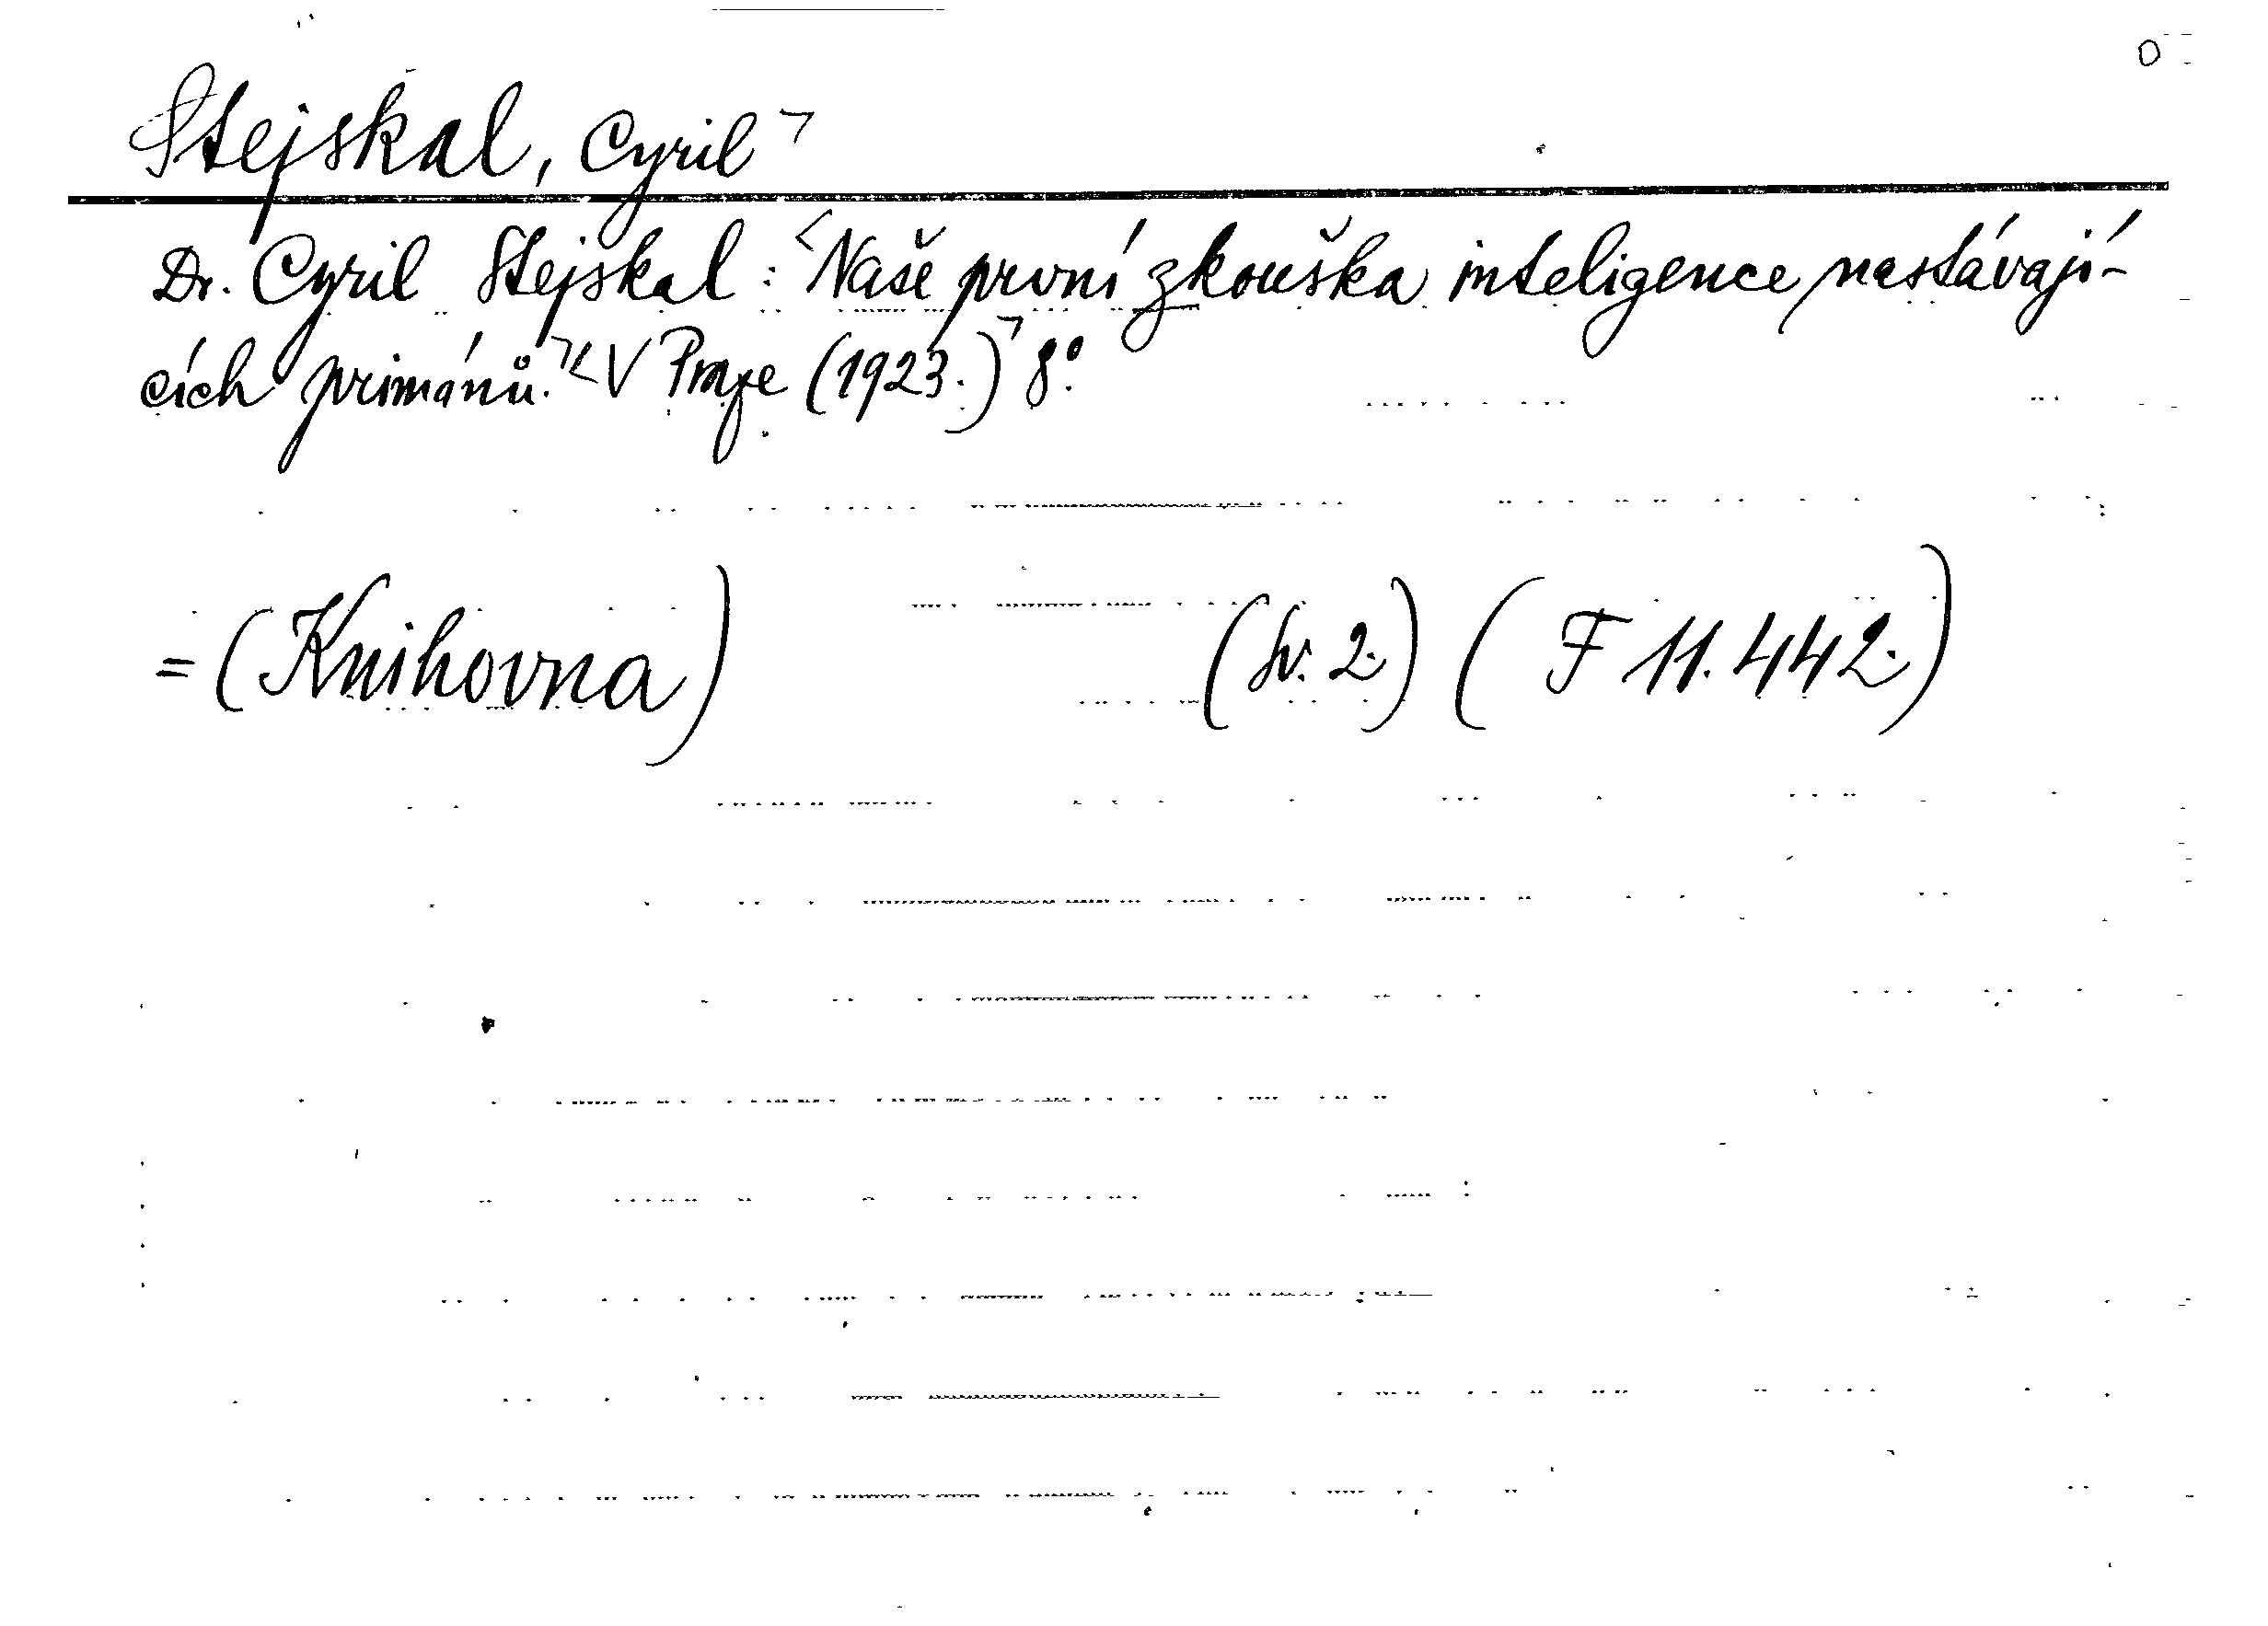 Stejskal, Cyril ¬
Dr. Cyril Stejskal: <Naše první zkouška inteligence nastávají-
cích primánů.¬ <V Praze (1923.)¬ 8°.
= (Knihovna) (Sv. 2.) (F 11.442.)